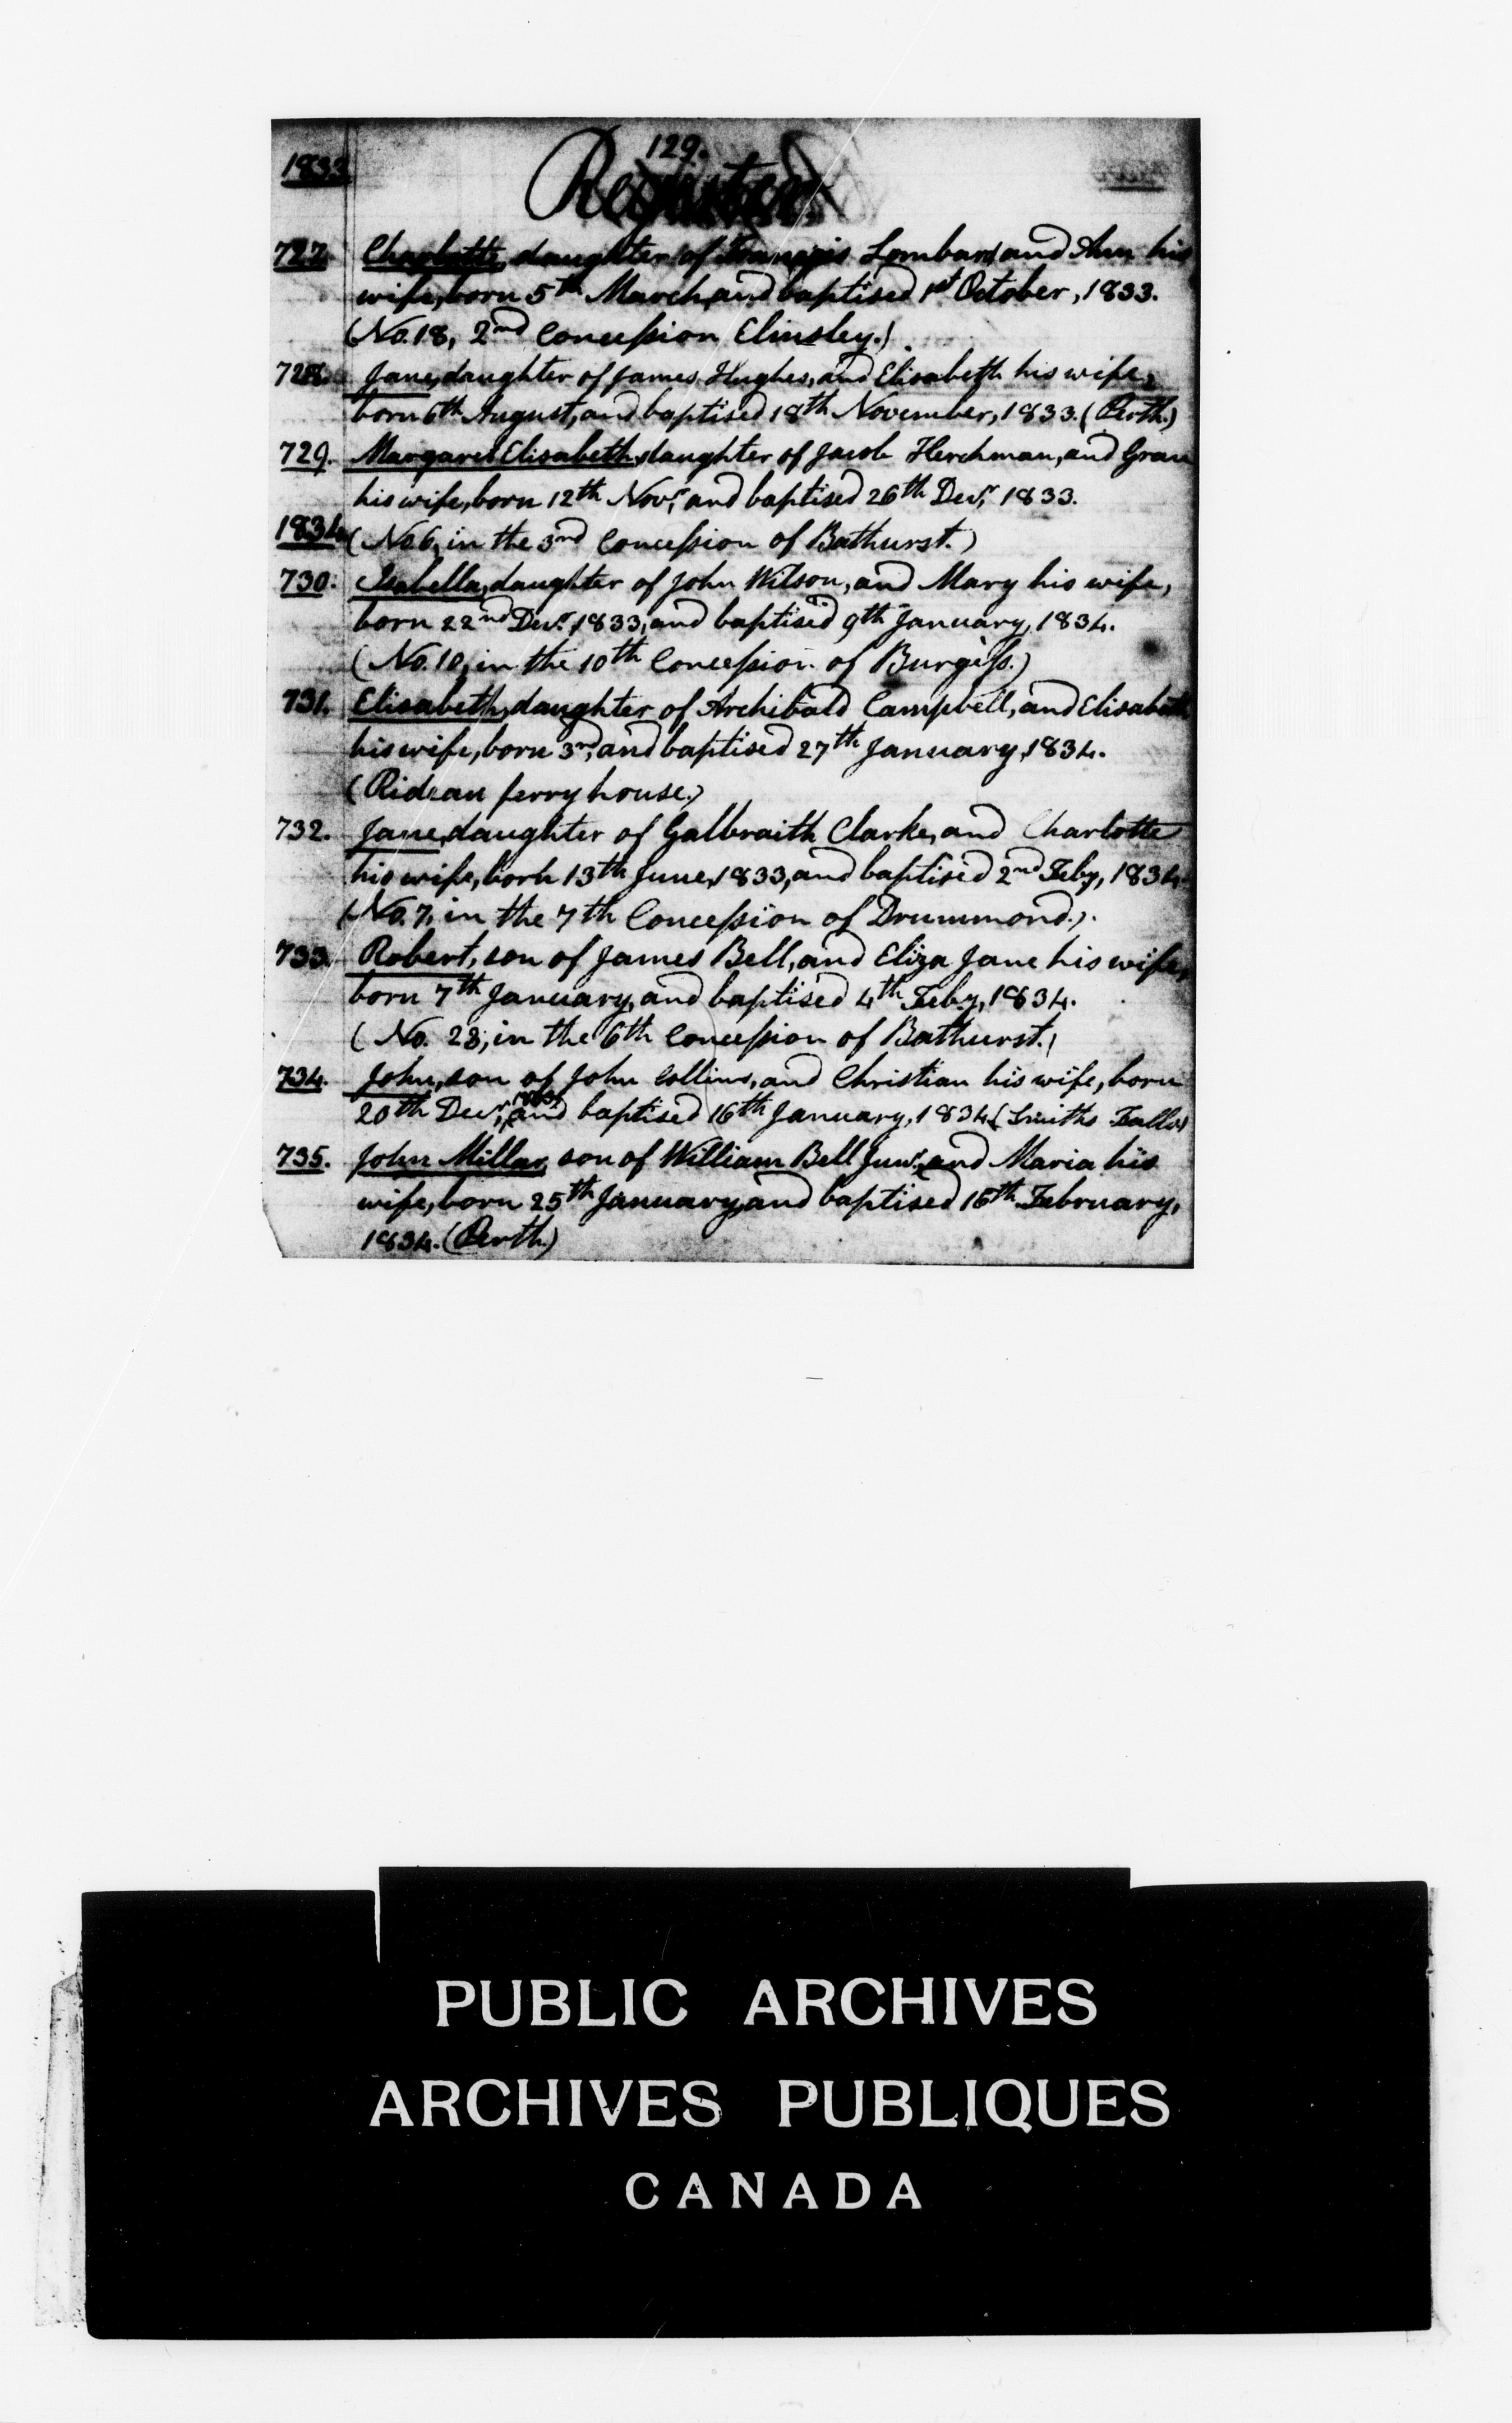 129.
1833
Register
727. Charlotte, daughter of Francis Lombard and Ann his
wife, born 5th March, and baptised 1st October, 1833.
(No. 18, 2nd Concession Elmsley.)
728. Jane, daughter of James Hughes, and Elisabeth his wife,
born 6th August, and baptised 18th November, 1833. (Perth.)
729. Margaret Elisabeth, daughter of Jacob Herchman, and Grace
his wife, born 12th Novr, and baptised 26th Decr, 1833.
1834. (No. 6, in the 3rd Concession of Bathurst.)
730. Isabella, daughter of John Wilson, and Mary his wife,
born 22nd Decr. 1833, and baptised 9th January, 1834.
(No. 10, in the 10th Concession of Burgess.)
731. Elisabeth, daughter of Archibald Campbell, and Elisabeth
his wife, born 3rd, and baptised 27th January, 1834.
(Ridean ferry house.)
732. Jane, daughter of Galbraith Clarke, and Charlotte
his wife, born 13th June, 1833, and baptised 2nd Feby, 1834.
(No. 7, in the 7th Concession of Drummond.)
733. Robert, son of James Bell, and Eliza Jane his wife,
born 7th January, and baptised 4th Feby, 1834.
(No. 28, in the 6th Concession of Bathurst.)
734. John, son of John Collins, and Christian his wife, born
20th Decr, 1833, and baptised 16th January, 1834. (Smiths Falls)
735. John Millar, son of William Bell Junr. and Maria his
wife, born 25th January, and baptised 16th February,
1834. (Perth.)
PUBLIC ARCHIVES
ARCHIVES PUBLIQUES
CANADA